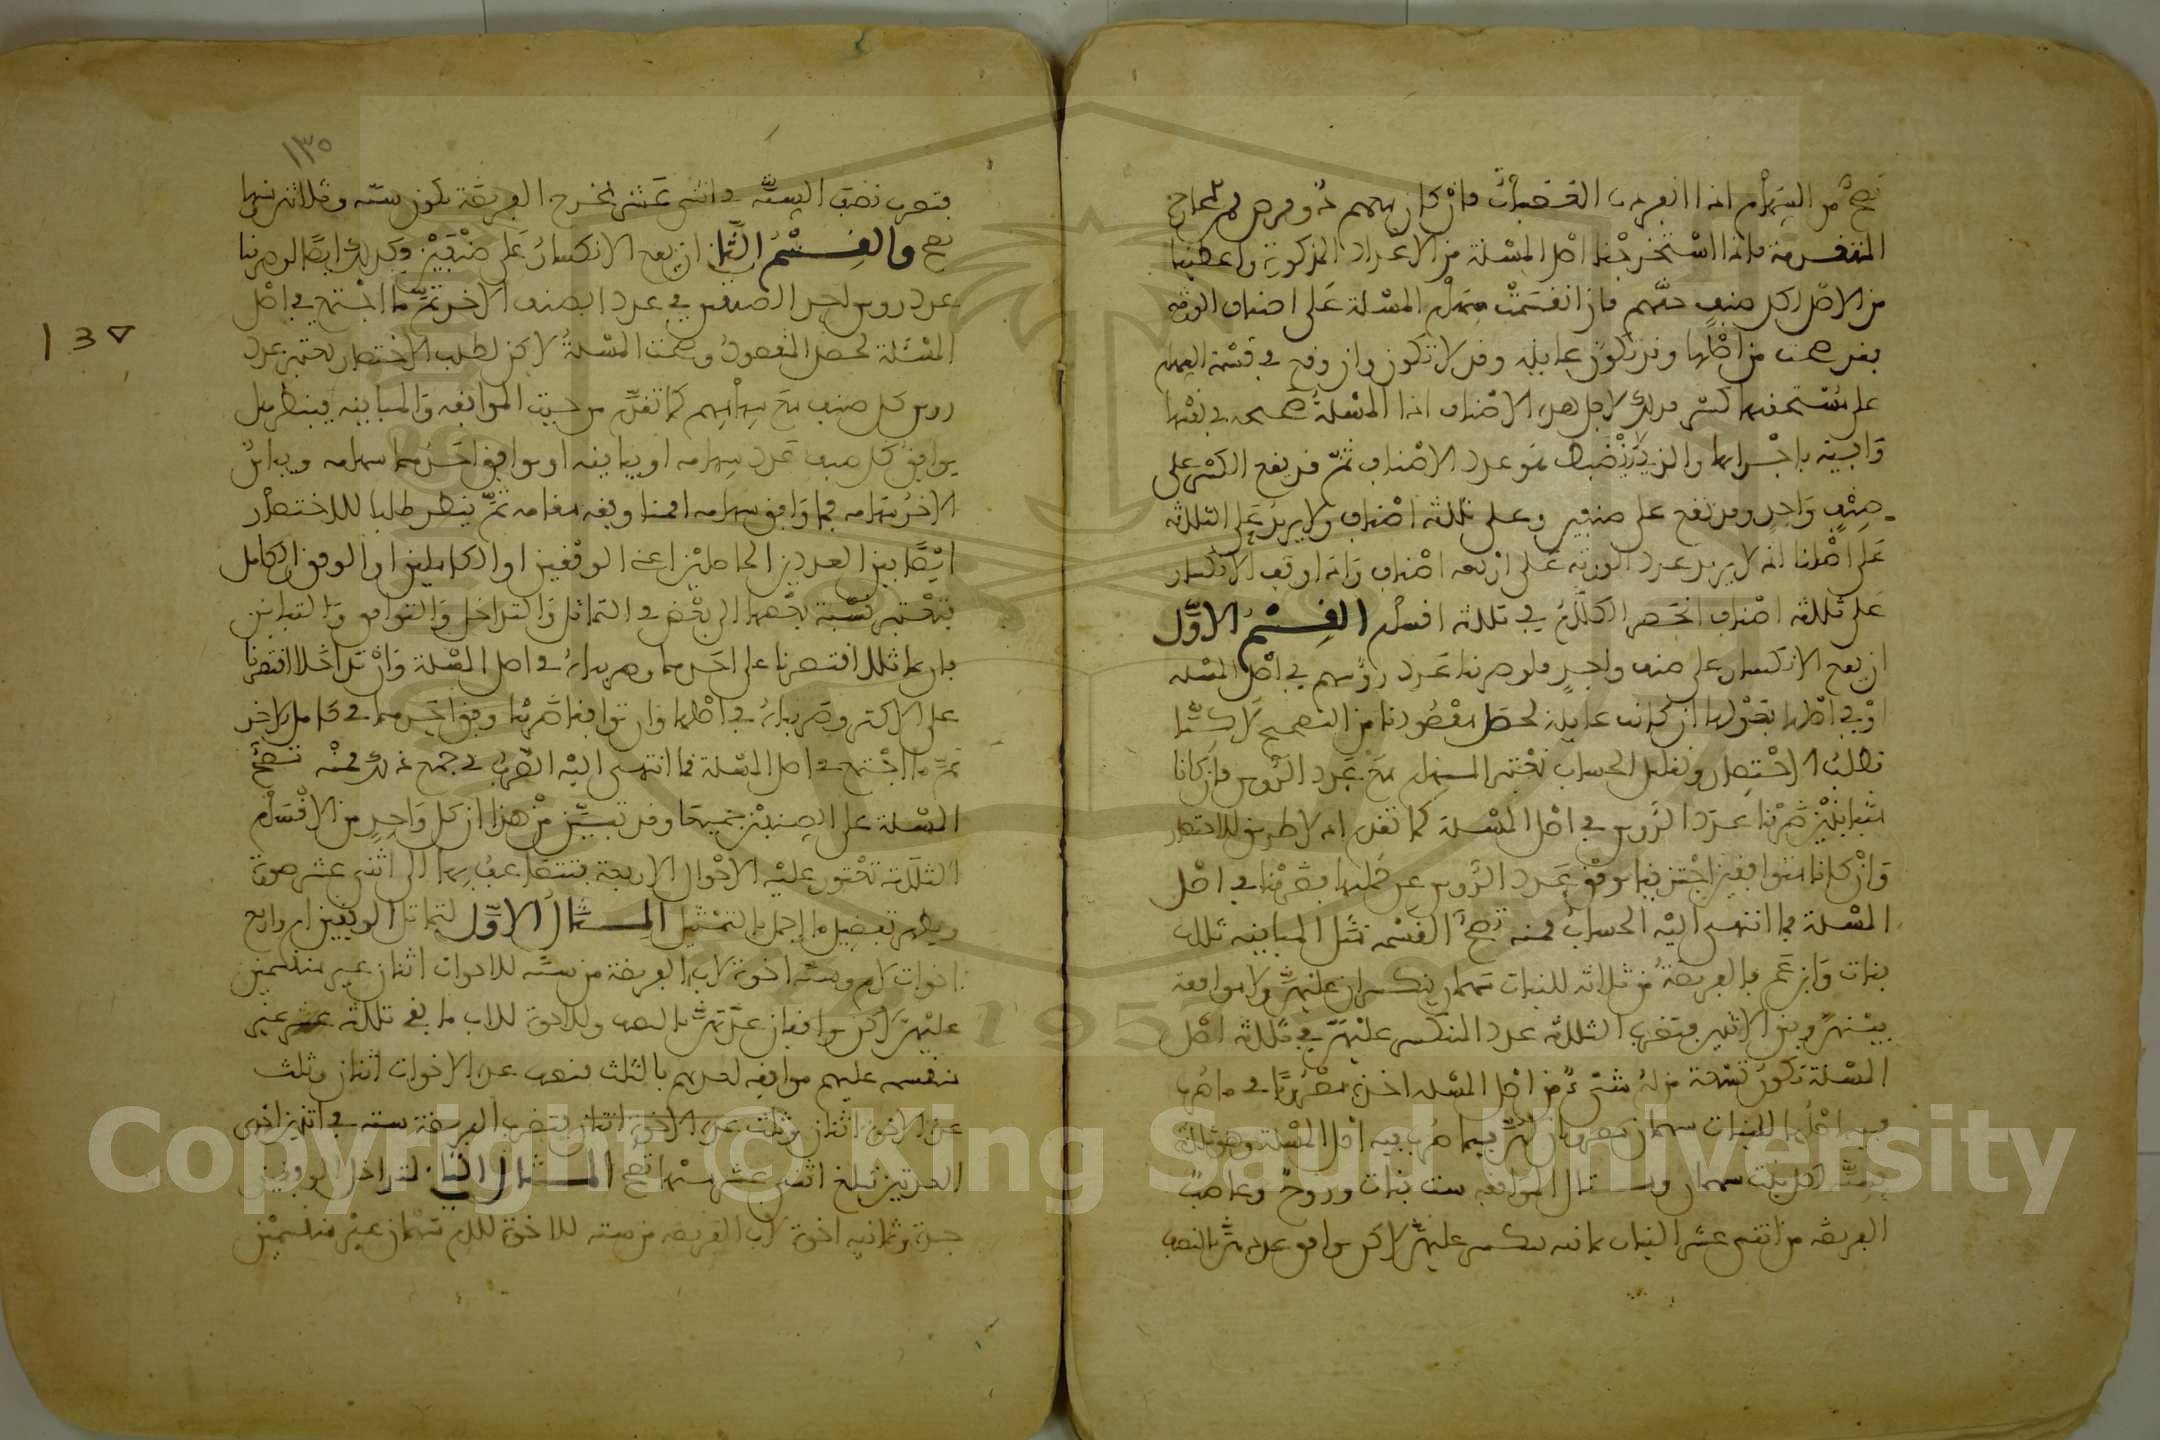 تصح من السهام اذا انفردت العصبات فان كان بينهم ذو فرض فمن المخارج
المتقدمة فاذا استخرجنا اصل المسئلة من الاعداد المذكورة واعطينا
من الاصل لكل صنف حقهم فان انقسمت سهام المسئلة على اصناف الورثة
فقد صحت من اصلها وقد تكون عايلة وقد لا تكون وان وقع في قسمة السهام
على مستحقيها كسر فذلك لاجل هذه الاصناف اذا المسئلة صحيحة في نفسها
وابية باجزايها والذي ينضبط هو عدد الاصناف ثم قد يقع الكسر على
صنف واحد وقد تقع على صنفين وعلى ثلاثة اصناف ولا يزيد على الثلاثة
على اصلنا انه لا يزيد عدد الورثة على اربعة اصناف واذا وقف الانكسار
على ثلاثة اصناف انحصر الكلام في ثلاثة اقسام القسم الاول
ان يقع الانكسار على صنف واحد فلو ضربنا عدد رؤسهم في اصل المسئلة
او في اصلها بعولها ان كانت عايلة لحصل مقصودنا من التصحيح لاكننا
نطلب الاختصار وتقليل الحساب نعتبر السهام مع عدد الروس فان كانا
متباينين ضربنا عدد الروس في اصل المسئلة كما تقدم اذ لا طريق للاختصار
وان كانا متوافقين اجتزينا بوفق عدد الروس عن جملتها فضربنا في اصل
المسئلة فما انتهى اليه الحساب فمنه تصح القسمة مثل المباينة ثلاث
بنات وابن عم فالفريضة من ثلاثة للبنات سهمان ينكسران عليهن ولا موافقة
بينهن وبين الاثنين فتضرب الثلاثة عدد المنكسر عليهن في ثلاثة اصل
المسئلة تكون تسعة من له شيء من اصل المسئلة اخذه مضروبا في ما ضرب
فيه اصلها للبنات سهمان مضروبان لهن فيما ضرب فيه اصل المسئلة وهو ثلاثة
بستة لكل بنت سهمان ومثال الموافقة ست بنات وزوج وعاصب
الفريضة من اثنى عشر للبنات ثمانية تنكسر عليهن لاكن توافق عددهن بالنصف
١٣٥
فتضرب نصف الستة في اثنى عشر مخرج الفريضة تكون ستة وثلاثين منها
تصح والقسم الثاني ان يقع الانكسار على صنفين وكذلك ايضا لو ضربنا
عدد روس احد الصنفين في عدد الصنف الاخر ثم ما اجتمع في اصل
المسئلة لحصل المقصود وصحت المسئلة لاكن لطلب الاختصار نعتبر عدد
روس كل صنف مع سهامهم كما تقدم من حيث الموافقة والمباينة فينظر هل
يوافق كل صنف عدد سهامه او يباينه او يوافق احدهما سهامه ويباين
الاخر سهامه فما وافق سهامه اقمنا وفقه مقامه ثم ننظر طلبا للاختصار
137
ايضا بين العددين الحاصلين اعني الوفقين او الكاملين او الوفق والكامل
فتعتبر نسبة بعضها الى بعض في التماثل والتداخل والتوافق والتباين
فان تماثلا اقتصرنا على احدهما وضربناه في اصل المسئلة وان تداخلا اقتصرنا
على الاكثر وضربناه في اصلها وان توافقا ضربنا وفق احدهما في كامل الاخر
ثم ما اجتمع في اصل المسئلة فما انتهى اليه الضرب في جميع ذلك فمنه تصح
المسئلة على الصنفين جميعا وقد تبين من هذا ان كل واحد من الاقسام
الثلاثة تعتور عليه الاحوال الاربعة فتتضاعف بها الى اثنى عشر صورة
ويظهر تفصيل ما اجمل بالتمثيل المثال الاول لتماثل الوفقين ام واربع
اخوات لام وستة اخوة لاب الفريضة من ستة للاخوات اثنان غير منقسمين
عليهن لاكن يوافقان عددهن بالنصف وللاخوة للاب ما بقي ثلاثة غير
منقسمة عليهم موافقة لعددهم بالثلث فنصف عدد الاخوات اثنان وثلث
عدد الاخوة اثنان وثلث عدد الاخوة اثنان فتضرب الفريضة ستة في اثنين احدى
العددين تبلغ اثنى عشر منها تصح المثال الثاني لتداخل الوفقين
جدة وثمانية اخوة لاب الفريضة من ستة للاخوة للام سهمان غير منقسمين